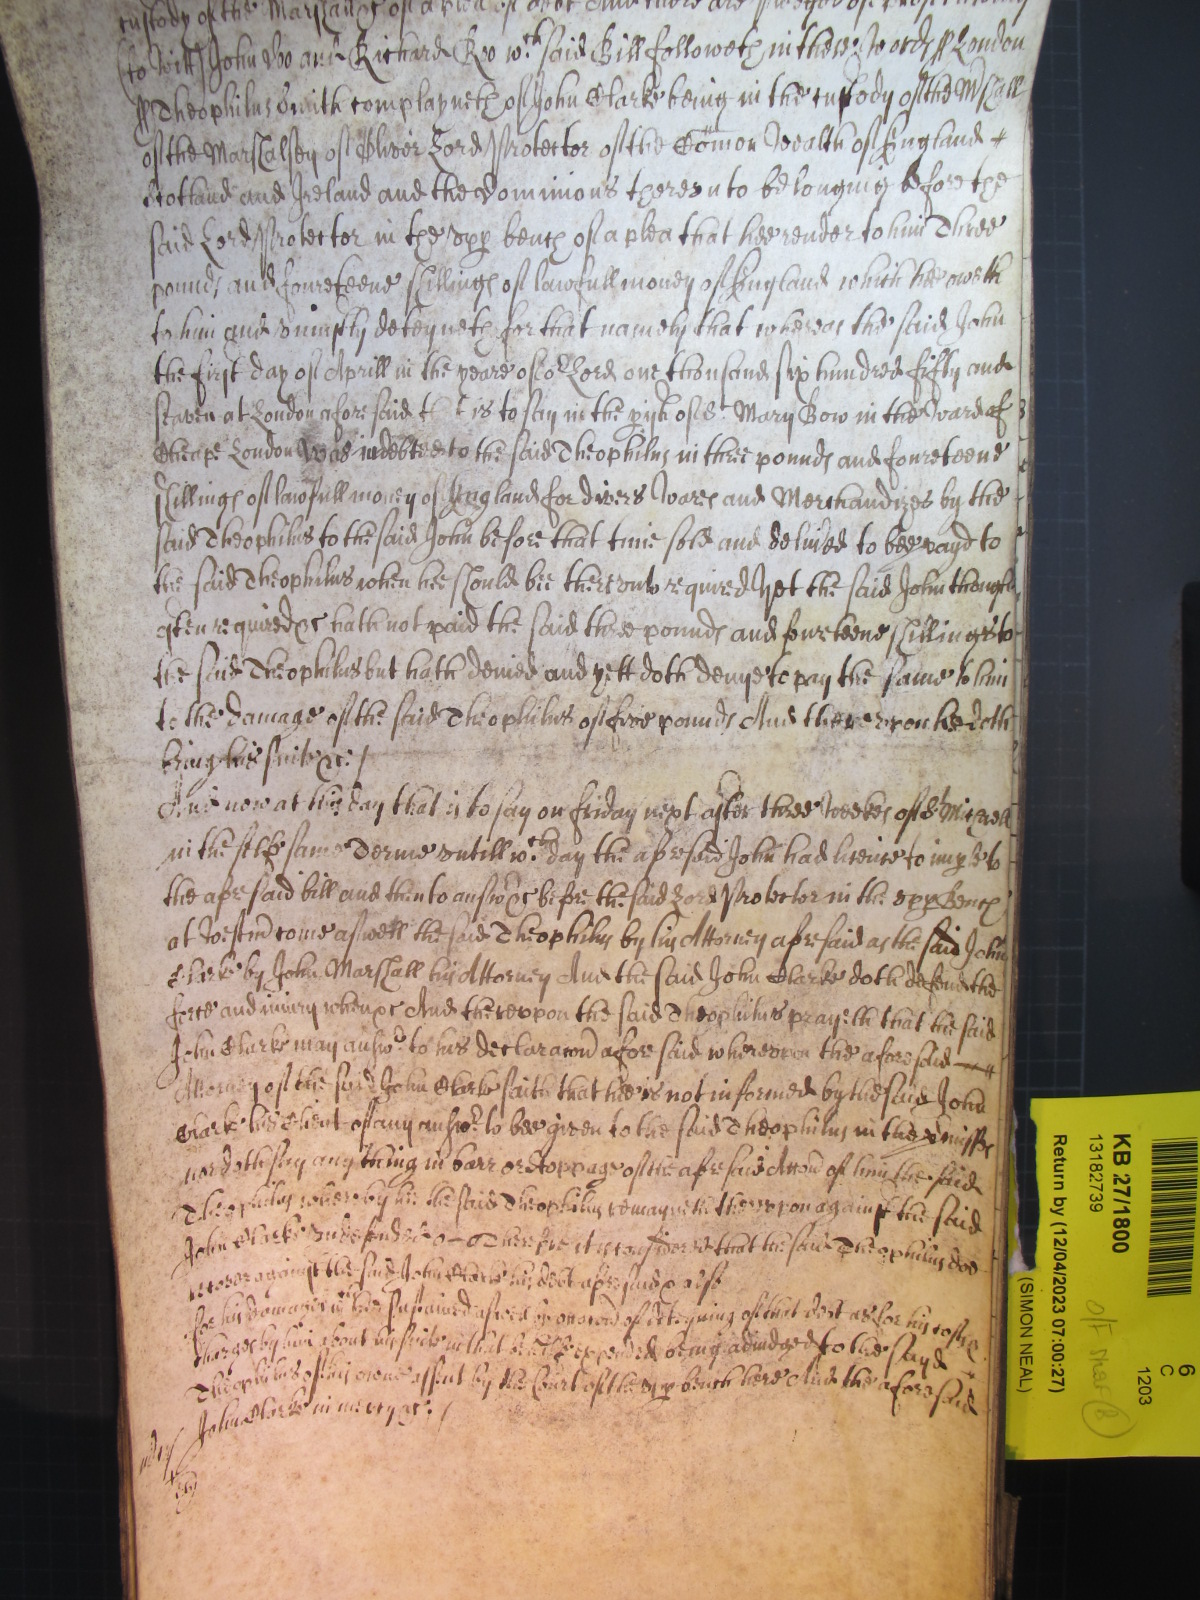 custody of the Marshall &c of a plea of debt And there are pledges of prosecuting
(to witt) John Doo and Richard Roo wch said Bill followeth in these words ss London
ss Theophilus Smith complayneth of John Clarke being in the custody of the Mshall
of the Marshalsey of Oliver Lord Protector of the Comon Wealth of England
Scotland and Ireland and the Dominions thereunto belonging before the
said Lord Protector in the upp bench of a plea that hee render to him Three
pounds and foureteene shillings of lawfull money of England which hee oweth
to him and uniustly deteyneth for that namely that whereas the said John
the first day of Aprill in the yeare of or Lord one thousand six hundred fifty and
seaven at London aforesaid that is to say in the pish of St Mary Bow in the Ward of
Cheape London was indebted to the said Theophilus in three pounds and foureteene
shillings of lawfull money of England for divers Wares and Merchandizes by the
said Theophilus to the said John before that time sold and delived to bee payd to
the said Theophilus when hee should bee thereunto required Yet the said John though
often required &c hath not paid the said three pounds and foureteene shillings to
the said Theophilus but hath denied and yett doth denye to pay the same to him
to the damage of the said Theophilus of five pounds And thereupon he doth
bring his suite &c /
And now at this day that is to say on Friday next after three Weekes of St Michaell
in the selfe same Terme untill wch day the aforesaid John had licence to imple to
the aforesaid bill and then to answr &c before the said Lord Protector in the upp Bench
at Westmr come aswell the said Theophilus by his Attorney aforesaid as the said John
Clarke by John Marshall his Attorney And the said John Clarke doth defend the
force and iniury when &c And thereupon the said Theophilus prayeth that the said
John Clarke may answr to his declaracon aforesaid whereupon the aforesaid
Attorney of the said John Clarke saith that hee is not informed by the said John
Clarke his Client of any answr to bee given to the said Theophilus in the pmisses
nor doth say any thing in barr or stoppage of the aforesaid Accon of him the said
Theophilus whereby hee the said Theophilus remayneth thereupon against the said
John Clarke undefended &c Therefore it is considered that the said Theophilus doe
recover against the said John Clarke his debt aforesaid &
for his damages wch hee sustained aswell by occasion of deteyning of that debt as for his costs &
charges by him about his suite in that behalfe expended being adiudged to the sayd
Theophilus of his owne assent by the Court of the upp bench here And the aforesaid
John Clarke in mercy &c. /
mcy
KB 27/1800
13182739
Return by (12/04/2023 07:00:27)
(SIMON NEAL)
6
C
1203